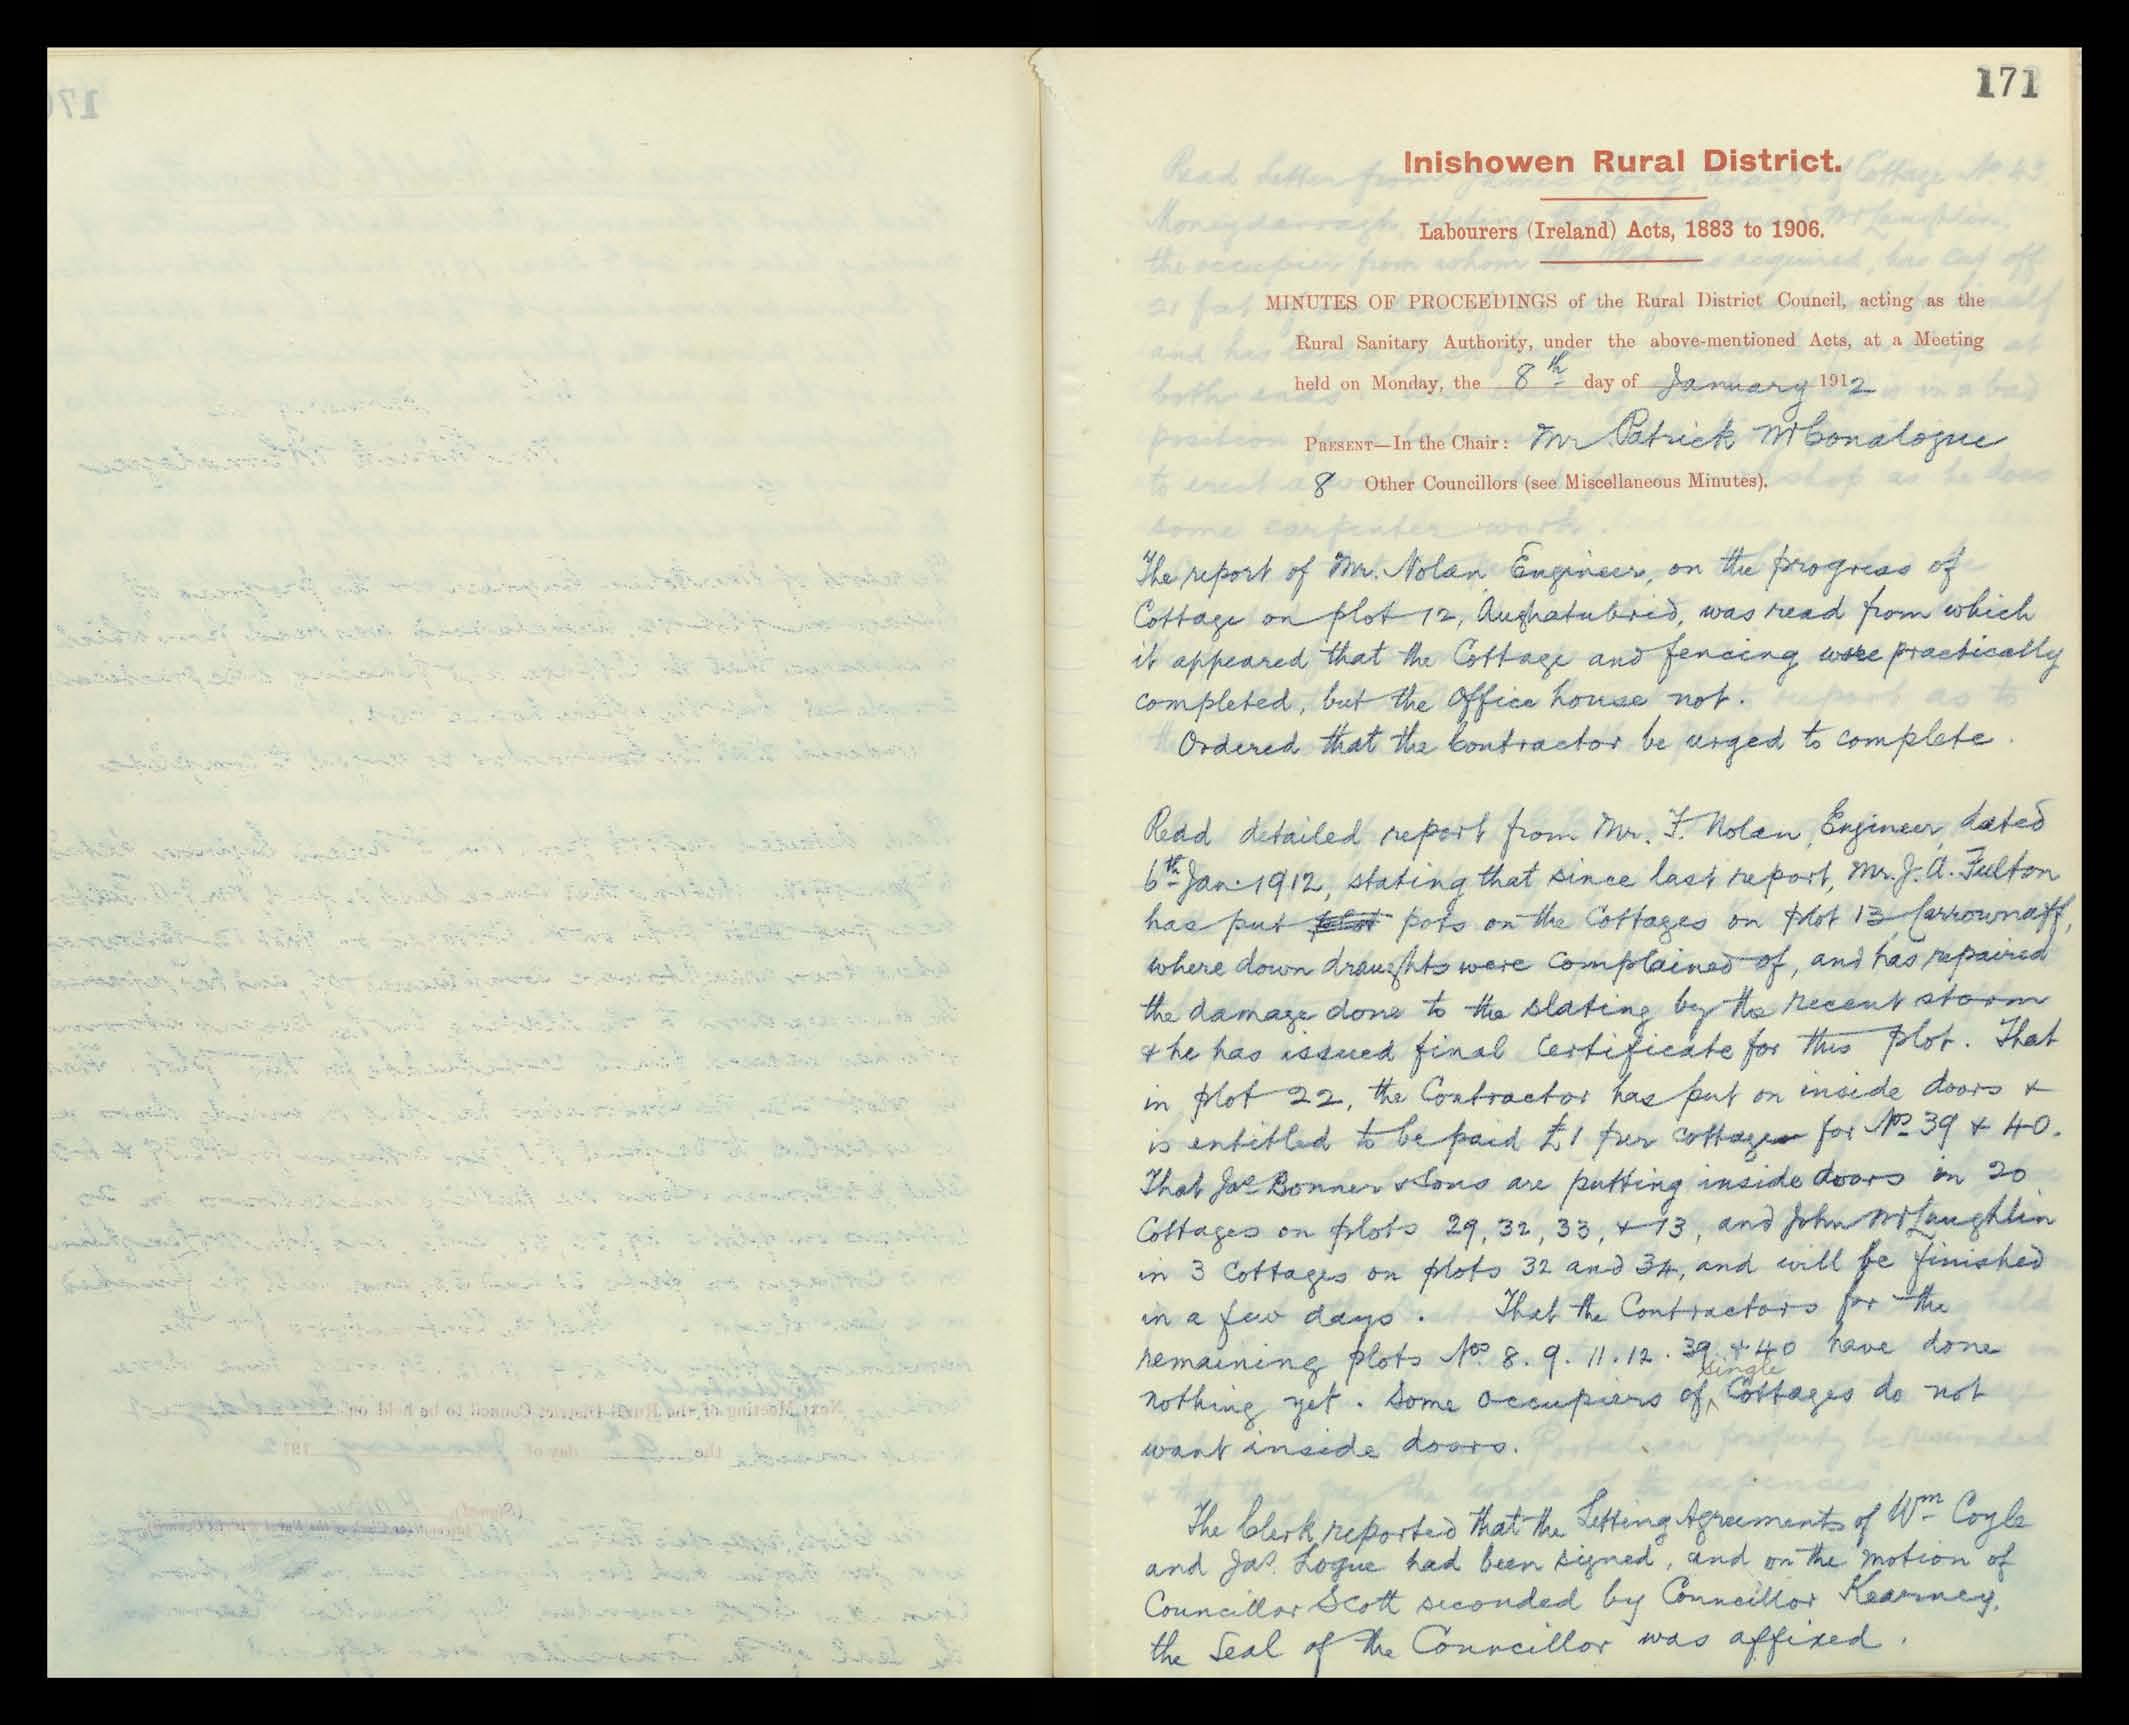 171
Inishowen Rural District.
Labourers (Ireland) Acts, 1883 to 1906.
MINUTES OF PROCEEDINGS of the Rural District Council, acting as the
Rural Sanitary Authority, under the above-mentioned Acts, at a Meeting
held on Monday, the 8th day of January 1912
PRESENT—In the Chair: Mr Patrick McConalogue
8 Other Councillors (see Miscellaneous Minutes).
The report of Mr. Nolan Engineer, on the progress of
Cottage on plot 12, Aughatubrid, was read from which
it appeared that the Cottage and fencing were practically
completed, but the Office house not.
Ordered that the Contractor be urged to complete.
Read detailed report from Mr. F. Nolan, Engineer, dated
6th Jan. 1912, stating that since last report, Mr. J. A. Fulton
has put plot pots on the Cottages on plot 13 Carrownaff,
where down draughts were complained of, and has repaired
the damage done to the slating by the recent storm
& he has issued final Certificate for this plot. That
in plot 22, the Contractor has put on inside doors &
is entitled to be paid £1 per cottage for Nos 39 & 40.
That Jas Bonner & Sons are putting inside doors in 20
Cottages on plots 29, 32, 33, & 13, and John McLaughlin
in 3 Cottages on plots 32 and 34, and will be finished
in a few days. That the Contractors for the
remaining plots Nos 8. 9. 11. 12. 39 & 40 have done
nothing yet. Some occupiers of single Cottages do not
want inside doors.
The Clerk reported that the Letting Agreements of Wm Coyle
and Jas. Logue had been signed, and on the motion of
Councillor Scott seconded by Councillor Kearney,
the Seal of the Councillor was affixed.